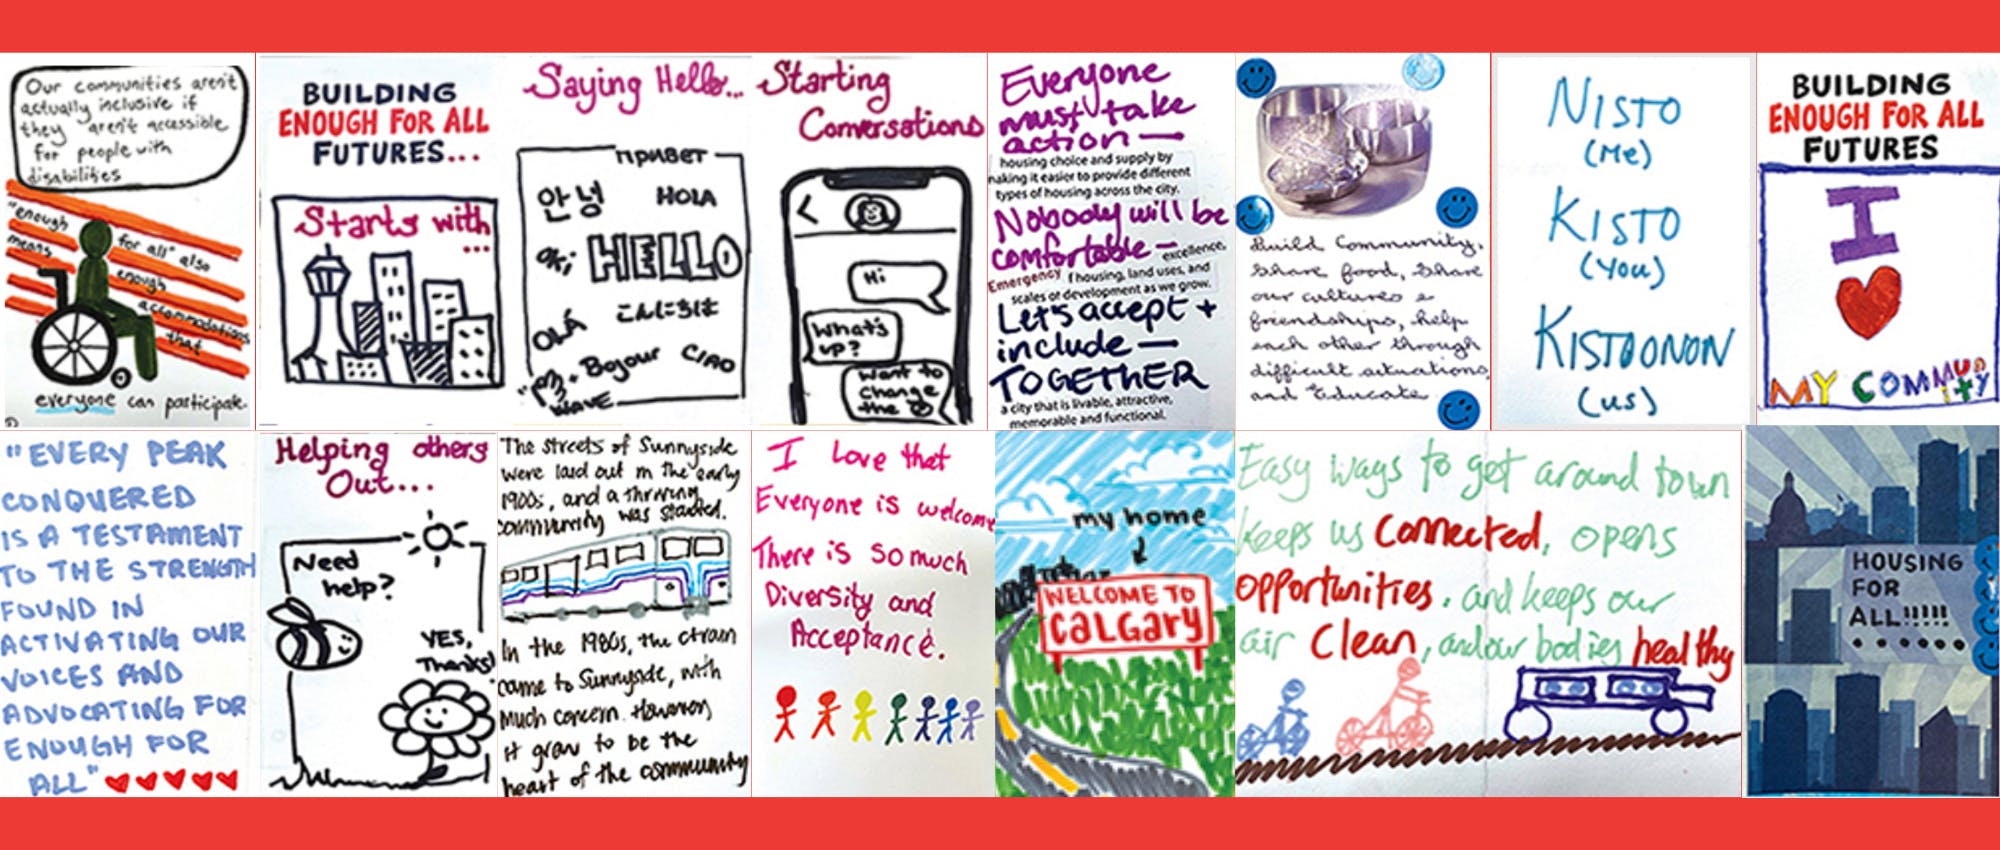 Our communities aren't
actually inclusive if
they aren't accessible
for people with
disabilities
"enough for all" also
means enough
accommodations
that
everyone can participate.
BUILDING
ENOUGH FOR ALL
FUTURES...
Starts with
...
Saying Hello...
привет
안녕
HOLA
HELLO
OLÁ
こんにちは
Bojour
CIAO
WAVE
Starting
Conversations
Hi
What's
up?
Want to
change
the
Everyone
must take
action —
housing choice and supply by
making it easier to provide different
types of housing across the city.
Nobody will be
comfortable —
excellence,
Emergency
f housing, land uses, and
scales of development as we grow.
Let's accept +
include —
TOGETHER
a city that is livable, attractive,
memorable and functional.
Build Community,
Share food, Share
our cultures &
friendships, help
each other through
difficult situations
and Educate
NISTO
(Me)
KISTO
(You)
KISTOONON
(us)
BUILDING
ENOUGH FOR ALL
FUTURES
I
MY COMMUNITY
"EVERY PEAK
CONQUERED
IS A TESTAMENT
TO THE STRENGTH
FOUND IN
ACTIVATING OUR
VOICES AND
ADVOCATING FOR
ENOUGH FOR
ALL"
Helping others
Out...
Need
help?
YES,
Thanks!
The streets of Sunnyside
were laid out in the early
1900s, and a thriving
community was started.
In the 1980s, the ctrain
came to Sunnyside, with
much concern. However,
it grew to be the
heart of the community
I Love that
Everyone is welcome
There is so much
Diversity and
Acceptance.
my home
WELCOME TO
CALGARY
Easy ways to get around town
keeps us connected, opens
opportunities, and keeps our
air clean, and our bodies healthy
HOUSING
FOR
ALL!!!!!